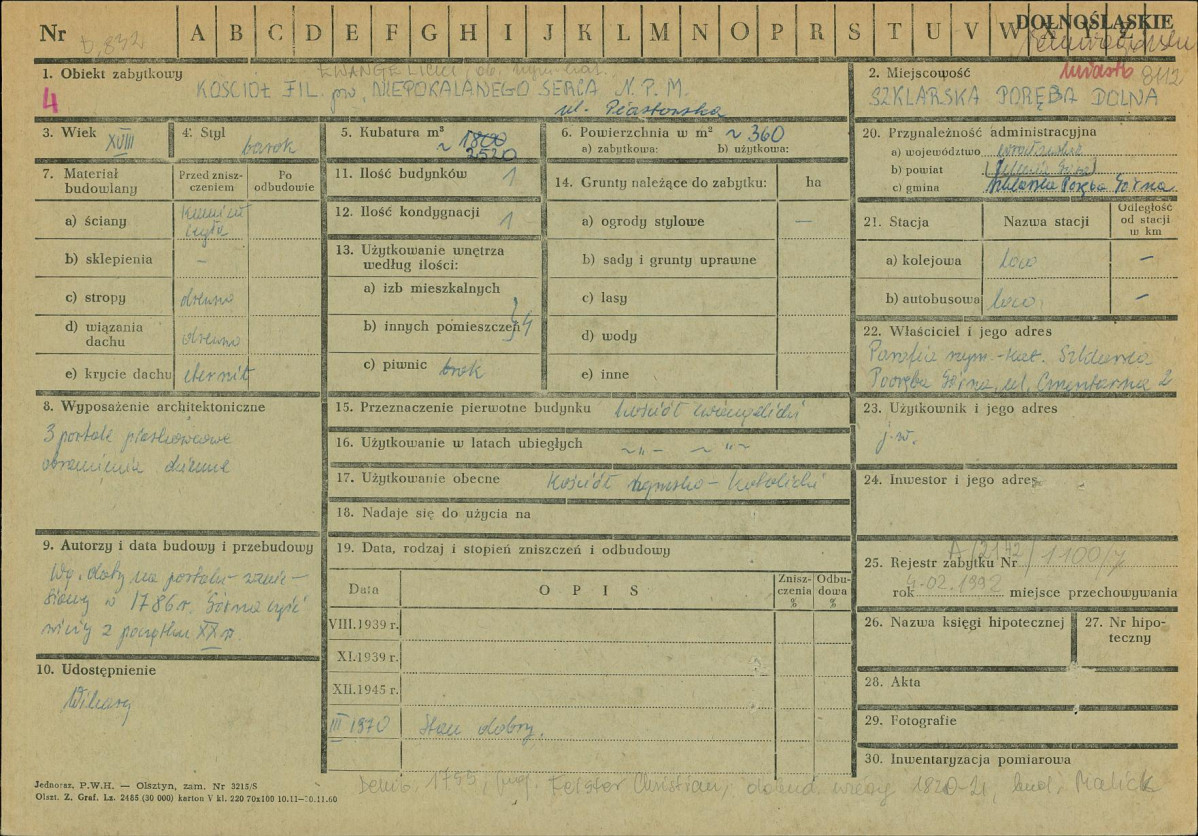 Nr A B C D E F G H I J K L M N O P R S T U V W X Y Z
DOLNOŚLĄSKIE
1. Obiekt zabytkowy
EWANGELICKI, ob. rzym-kat.
4
KOŚCIÓŁ FIL. pw. NIEPOKALANEGO SERCA N.P.M.
ul. Piastowska
2. Miejscowość
miasto 8112
SZKLARSKA PORĘBA DOLNA
3. Wiek XVIII
4. Styl barok
5. Kubatura m³ ~ 1800
2520
6. Powierzchnia w m² ~ 360
a) zabytkowa: b) użytkowa:
7. Materiał budowlany
Przed zniszczeniem
Po odbudowie
a) ściany kamień cegła
b) sklepienia –
c) stropy drewno
d) wiązania dachu drewno
e) krycie dachu eternit
8. Wyposażenie architektoniczne
3 portale piaskowcowe
obramienia okienne
9. Autorzy i data budowy i przebudowy
Wg. daty na portalu wznie-
siony w 1786 r. Górna część
wieży z początku XX w.
10. Udostępnienie
11. Ilość budynków 1
12. Ilość kondygnacji 1
13. Użytkowanie wnętrza
według ilości:
a) izb mieszkalnych
b) innych pomieszczeń } 4
c) piwnic brak
14. Grunty należące do zabytku: ha
a) ogrody stylowe –
b) sady i grunty uprawne
c) lasy
d) wody
e) inne
15. Przeznaczenie pierwotne budynku kościół ewangelicki
16. Użytkowanie w latach ubiegłych ~ " – ~ " –
17. Użytkowanie obecne Kościół rzymsko-katolicki
18. Nadaje się do użycia na
19. Data, rodzaj i stopień zniszczeń i odbudowy
Data OPIS Zniszczenia % Odbudowa %
VIII.1939 r.
XI.1939 r.
XII.1945 r.
III 1970 Stan dobry.
20. Przynależność administracyjna
a) województwo wrocławskie
b) powiat Jelenia Góra
c) gmina Szklarska Poręba Górna
21. Stacja Nazwa stacji Odległość od stacji w km
a) kolejowa loco –
b) autobusowa loco –
22. Właściciel i jego adres
Parafia rzym.-kat. Szklarska
Poręba Górna, ul. Cmentarna 2
23. Użytkownik i jego adres
j.w.
24. Inwestor i jego adres
25. Rejestr zabytku Nr A/2142/1100/J
rok 4.02.1992 miejsce przechowywania
26. Nazwa księgi hipotecznej
27. Nr hipoteczny
28. Akta
29. Fotografie
30. Inwentaryzacja pomiarowa
Jednosz. P.W.H. — Olsztyn, zam. Nr 3215/S
Olszt. Z. Graf. Lz. 2485 (30 000) karton V kl. 220 70x100 10.11—30.11.60
1755, Christian, wieży 1820-21,